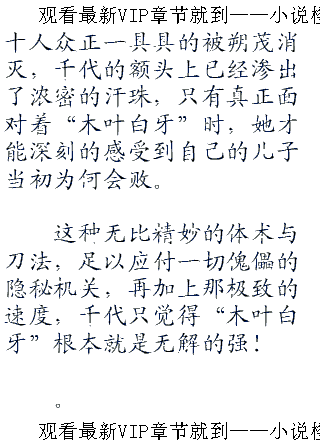 观看最新VIP章节就到——小说
十人众正一具具的被朔茂消
灭，千代的额头上已经渗出
了浓密的汗珠，只有真正面
对着“木叶白牙”时，她才
能深刻的感受到自己的儿子
当初为何会败。
这种无比精妙的体术与
刀法，足以应付一切傀儡的
隐秘机关，再加上那极致的
速度，千代只觉得“木叶白
牙”根本就是无解的强！
。
观看最新VIP章节就到——小说